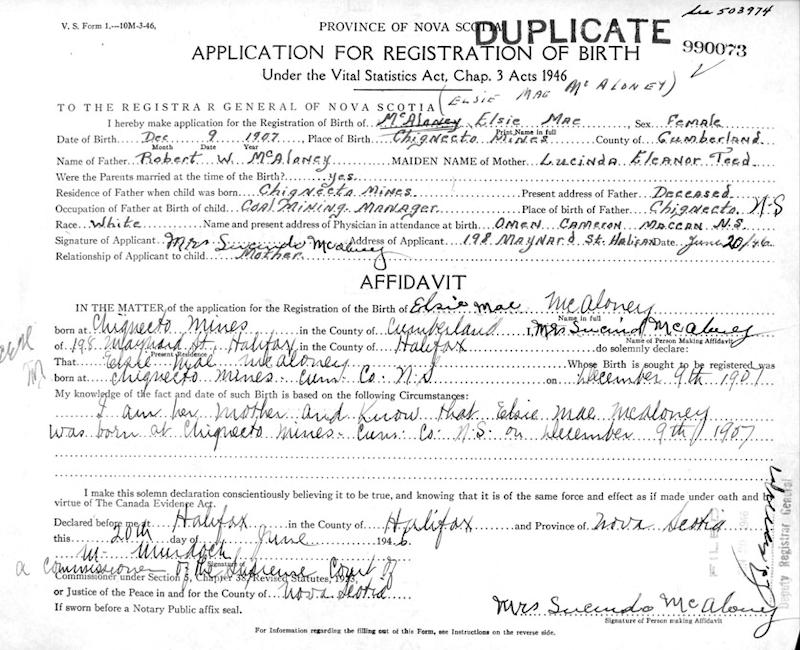 V. S. Form 1.—10M-3-46,
See 503974
PROVINCE OF NOVA SCOTIA
DUPLICATE
990073
APPLICATION FOR REGISTRATION OF BIRTH
Under the Vital Statistics Act, Chap. 3 Acts 1946
(ELSIE MAE McALONEY)
TO THE REGISTRAR GENERAL OF NOVA SCOTIA
I hereby make application for the Registration of Birth of McAloney, Elsie Mae Sex Female
Print Name in full
Date of Birth Dec 9 1907 Place of Birth Chignecto Mines County of Cumberland
Month Date Year
Name of Father Robert W. McAloney MAIDEN NAME of Mother Lucinda Eleanor Teed
Were the Parents married at the time of the Birth? yes
Residence of Father when child was born Chignecto Mines Present address of Father Deceased
Occupation of Father at Birth of child Coal Mining Manager Place of birth of Father Chignecto N-S
Race White Name and present address of Physician in attendance at birth Omen Cameron Maccan N.S.
Signature of Applicant Mrs Lucinda McAloney Address of Applicant 198 Maynard St. Halifax Date June 20/46
Relationship of Applicant to child Mother
AFFIDAVIT
IN THE MATTER of the application for the Registration of the Birth of Elsie Mae McAloney
Name in full
born at Chignecto Mines in the County of Cumberland I, Mrs Lucinda McAloney
Name of Person Making Affidavit
of 198 Maynard St, Halifax in the County of Halifax do solemnly declare:
Present Residence
That Elsie Mae McAloney Whose Birth is sought to be registered was
born at Chignecto Mines Cum. Co. N.S on December 9th 1907
My knowledge of the fact and date of such Birth is based on the following Circumstances:
I am her Mother and Know that Elsie Mae McAloney
was born at Chignecto Mines - Cum. Co. N.S. on December 9th 1907
I make this solemn declaration conscientiously believing it to be true, and knowing that it is of the same force and effect as if made under oath and by
virtue of The Canada Evidence Act.
Declared before me at Halifax in the County of Halifax and Province of Nova Scotia
this 20th day of June 1946
M. Murdoch
Signature
a commissioner of the Supreme Court of
Commissioner under Section 5, Chapter 38, Revised Statutes, 1923,
or Justice of the Peace in and for the County of Nova Scotia
If sworn before a Notary Public affix seal.
Mrs Lucinda McAloney
Signature of Person making Affidavit
For Information regarding the filling out of this Form, see Instructions on the reverse side.
FILED
Deputy Registrar General